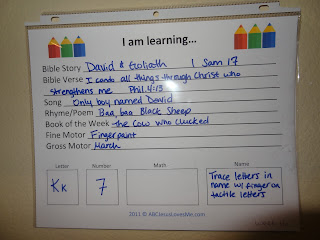 I am learning...
Bible Story David & Goliath 1 Sam 17
Bible Verse I can do all things through Christ who
strengthens me Phil. 4:13
Song Only boy named David
Rhyme/Poem Baa, baa Black Sheep
Book of the Week The Cow Who Clucked
Fine Motor Fingerpaint
Gross Motor March
Letter Number Math Name
Kk 7 Trace letters in
name w/ finger on
tactile letters
2011 © ABCJesusLovesMe.com